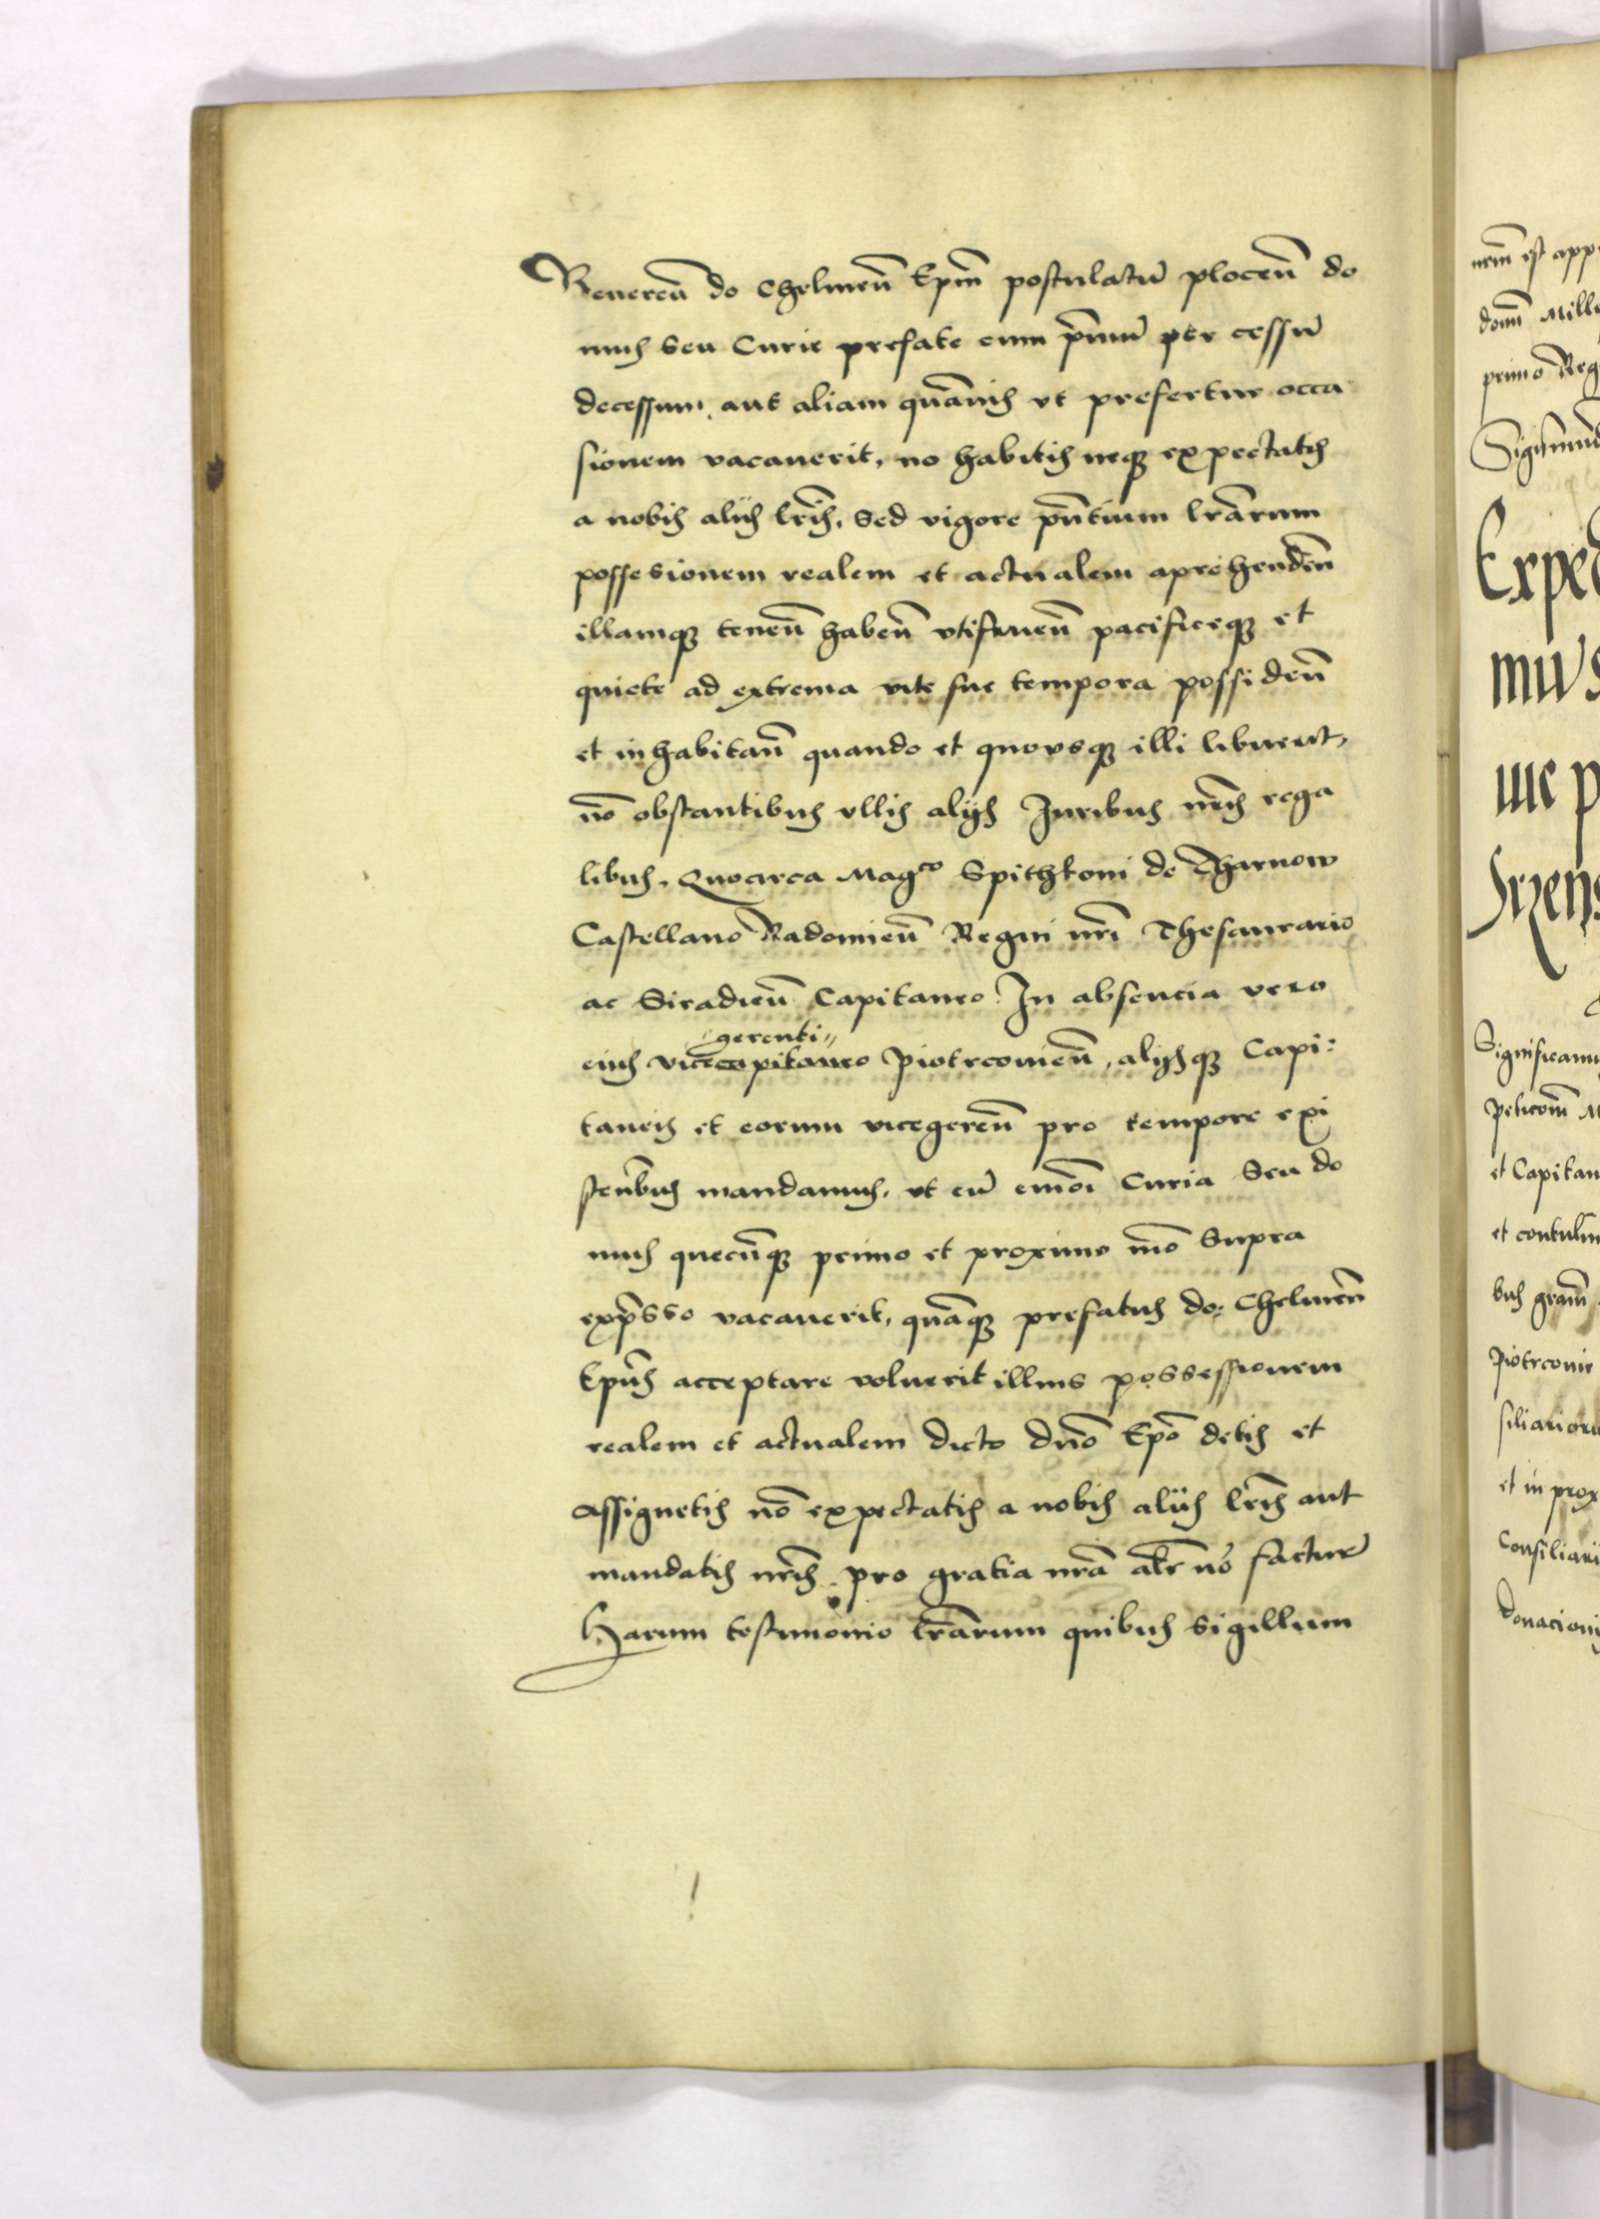 Reueren̄ do Chelmen̄ Ep̄m postulatū plocen̄ do
mus seu Curie prefate cum p̄mū per cessū
decessum, aut aliam quāuis vt prefertur occa
sionem vacauerit, no habitis neq; expectatis
a nobis aliis lr̄is, sed vigore pn̄tium lrārum
possesionem realem et actualem aprehenden̄
illamq; tenen̄ haben̄ vtifruen̄ pacificeq; et
quiete ad extrema vite sue tempora possiden̄
et inhabitan̄ quando et quousq; illi libuerit,
nō obstantibus vllis alijs Juribus nr̄is rega
libus. Quocirca Mag^co Spithkoni de Tharnow
Castellano Radomien̄ Regni nr̄i Thesaurario
ac Siradien̄ Capitaneo. In absencia vero
gerenti
eius vicecapitaneo Piotrcouien̄, alijsq; Capi:
taneis et eorum vicegeren̄ pro tempore exi
sten̄bus mandamus, vt cū emōi Curia Seu do
mus quecūq; primo et proximo mō Supra
exp̄sso vacauerit, quāq; prefatus do: Chelmen̄
Ep̄us acceptare voluerit illius possessionem
realem et actualem dicto dn̄o Ep̄o detis et
assignetis nō expectatis a nobis aliis lr̄is aut
mandatis nr̄is. pro gratia nrā alr̄ nō facturi
Harum testimonio lr̄arum quibus sigillum
nr̄m est app
primo Reg
Sigismund
Exped
mus
Significamus
et Capitan
et contulim
bus gram̄
Piotrconie
siliarioru
et in prox
Consiliari
donacioni